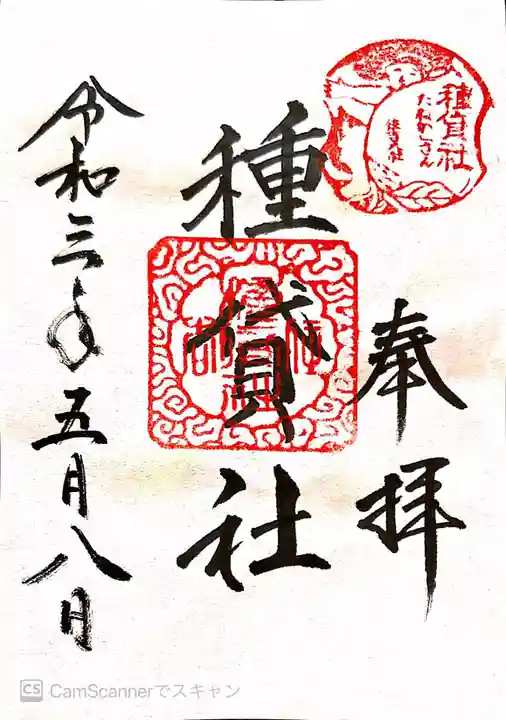 種貸社
たねかしさん
奉拝
種貸社
令和三年五月八日
CS CamScannerでスキャン